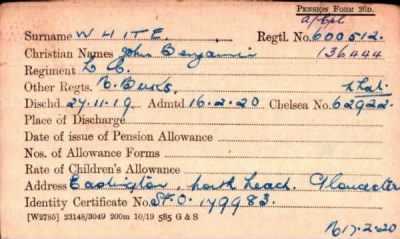 PENSION FORM 26D.
Surname WHITE. Regtl. No. 600512.
Christian Names John Benjamin 136444
Regiment L C.
Other Regts. R. Berks.
Dischd. 27.11.19. Admtd 16.2.20 Chelsea No. 62922.
Place of Discharge
Date of issue of Pension Allowance
Nos. of Allowance Forms
Rate of Children's Allowance
Address Eastington, north leach. Gloucester
Identity Certificate No. SF.O. 149983.
[W2785] 23148/3049 200m 10/19 585 G & S
17.2.20